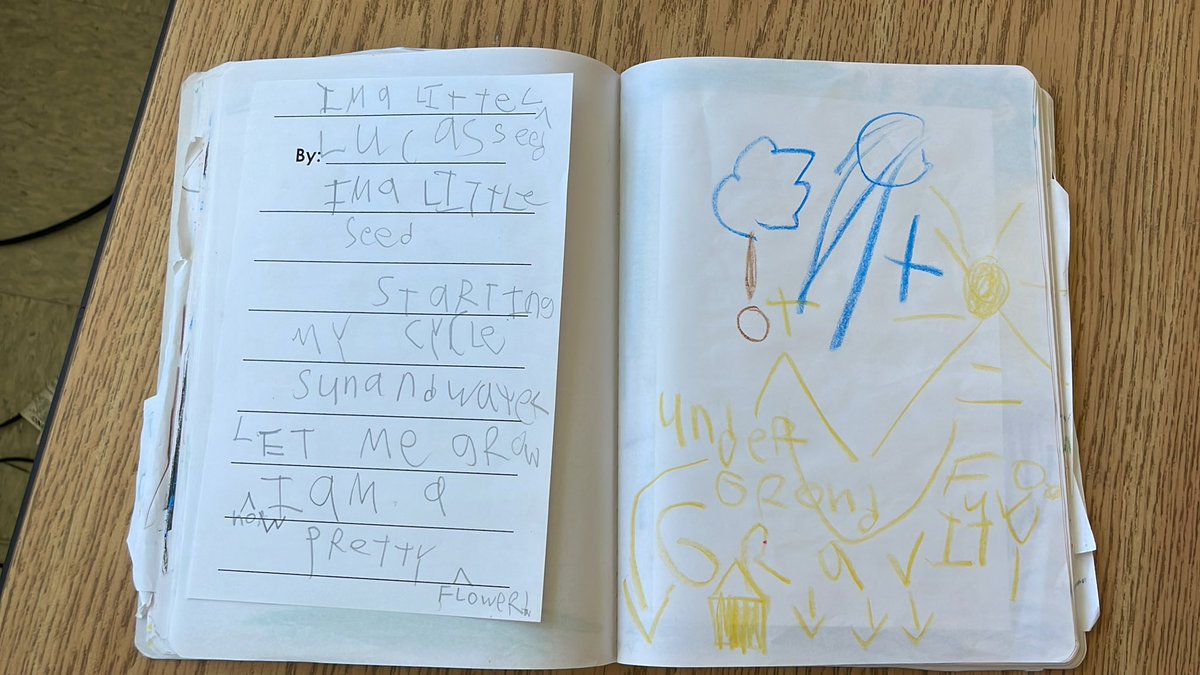 IMa LITTEL
By: LUCAS seed
IMa LITTLE
Seed
StaRTIng
MY CYCLE
sunandwateR
LET Me gRow
now I aM a
PReTTY
FLoweR!
under
GRound
GRav
Ity